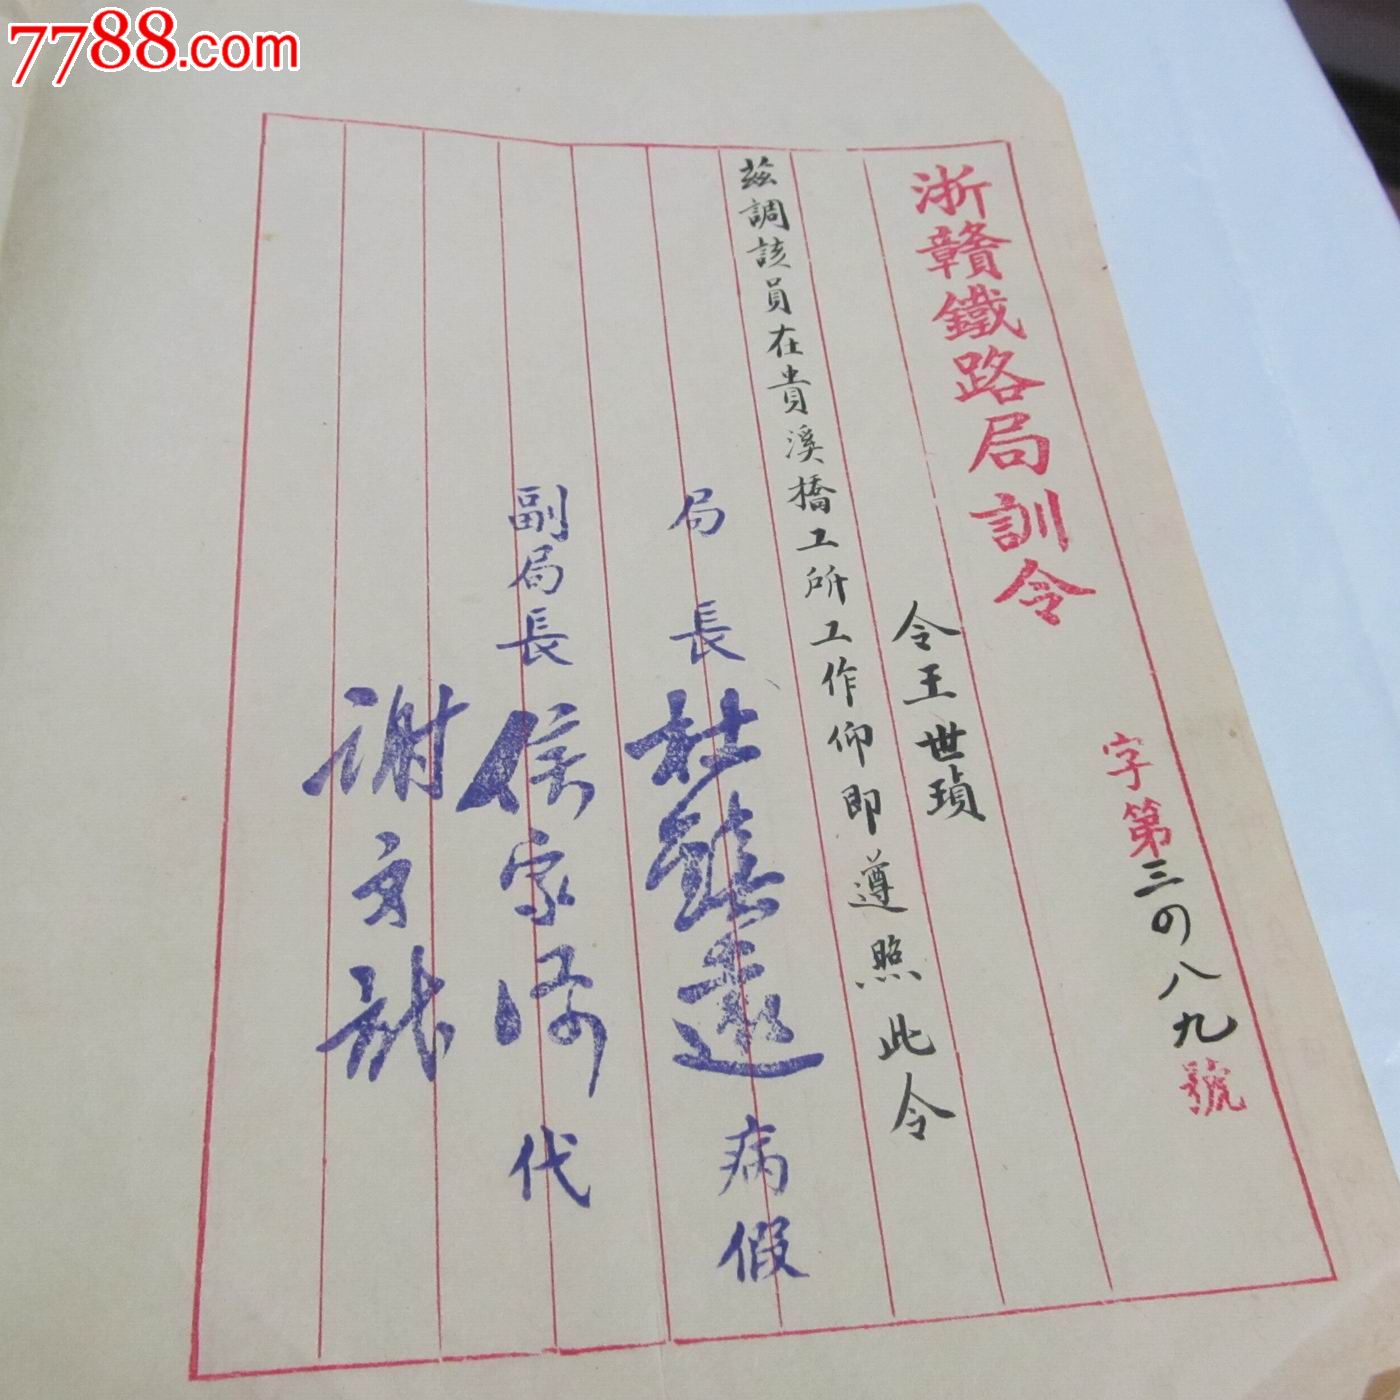 7788.com
浙贛鐵路局訓令
字第三四八九號
令王世瑱
茲調該員在貴溪橋工所工作仰即遵照此令
局長杜鎮遠病假
副局長侯家源代
謝文龍